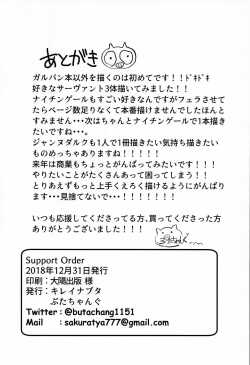 あとがき
ガルパン本以外を描くのは初めてです!!ﾄﾞｷﾄﾞｷ
好きなサーヴァント3体描いてみました!!
ナイチンゲールもすごい好きなんですがフェラさせて
たらページ数足りなくて本番描けませんでしたほんと
すみません・・・次はちゃんとナイチンゲールで1本描
きたいですね・・・。
ジャンヌダルクも1人で1冊描きたい気持ち描きたい
ものめっちゃありますね!!!!!
来年は商業もちょっとがんばってみたいです!!!
やりたいことがたくさんあって困ってしまう!!
とりあえずもっと上手くえろく描けるようにがんばり
ます・・・!!!
いつも応援してくださってる方,買ってくださった方
ありがとうございました!!!!
Support Order
2018年12月31日発行
印刷:大陽出版 様
発行:キレイナブタ
ぶたちゃんぐ
Twitter : @butachang1151
Mail : sakuratya777@gmail.com